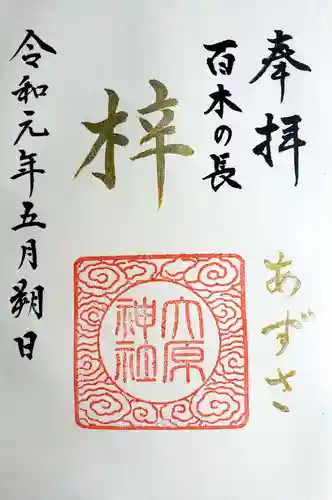 奉拝
あずさ
百木の長
梓
六原
神社
令和元年五月朔日